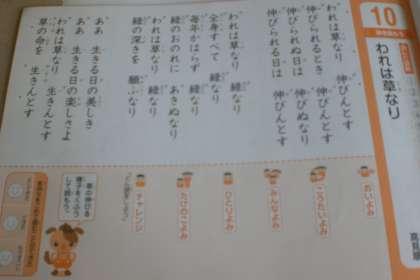 10
われは草なり
高見順
われは草なり 伸びんとす
伸びられるとき 伸びんとす
伸びられぬ日は 伸びぬなり
伸びられる日は 伸びんとす
われは草なり 緑なり
全身すべて 緑なり
毎年かはらず 緑なり
緑のおのれに あきぬなり
われは草なり 緑なり
緑の深きを 願ふなり
ああ 生きる日の美しき
ああ 生きる日の楽しさよ
われは草なり 生きんとす
草の命を 生きんとす
おいよみ
こうたいよみ
みんなよみ
ひとりよみ
たけのこよみ
チャレンジ
草の伸びる
様子をくふう
して読もう。